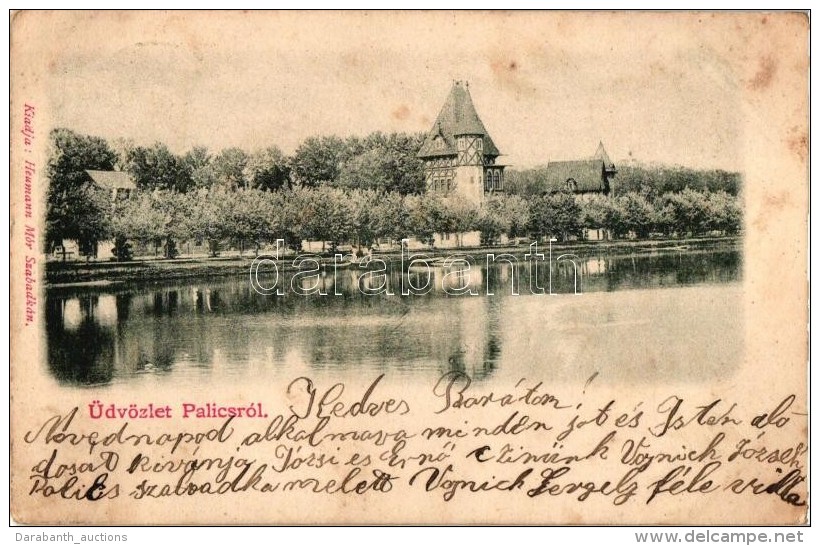 Kiadja: Heumann Mór Szabadkán.
darabanth
Üdvözlet Palicsról.
Kedves Barátom!
Növédnapod alkalmava minden jot és Isten aló
dosat kivánja Józsi es Ernő Czimünk Vojnich József
Palics szabadka melett Vojnich Gergely féle villa
Darabanth_auctions
http://www.delcampe.net